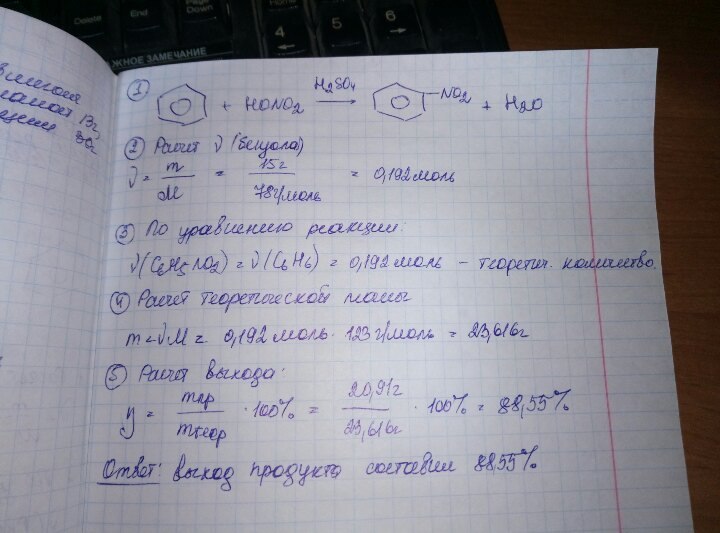 Delete
End
Page
Down
Home
4
5
6
ЖНОЕ ЗАМЕЧАНИЕ
1
+ HONO2 H2SO4 → NO2 + H2O
2 Расчет ν (бензола)
ν = m/M = 15г/78г/моль = 0,192 моль
3 По уравнению реакции:
ν(C6H5NO2) = ν(C6H6) = 0,192 моль – теоретич. количество.
4 Расчет теоретической массы
m = νM = 0,192 моль · 123 г/моль = 23,616г
5 Расчет выхода:
y = mпр/mтеор · 100% = 20,91г/23,616г · 100% = 88,55%
Ответ: выход продукта составил 8855%